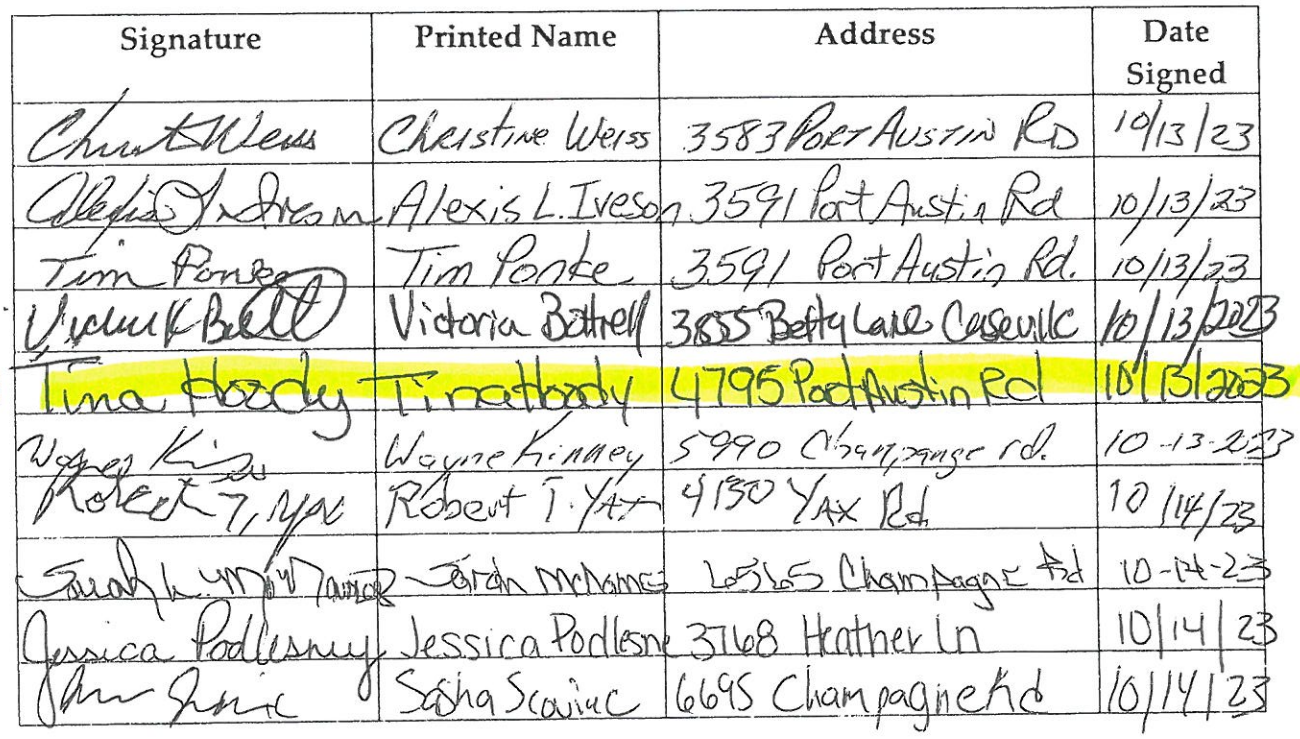 Signature Printed Name Address Date Signed
Christine Weiss 3583 Port Austin RD 10/13/23
Alexis L. Iveson 3591 Port Austin Rd 10/13/23
Tim Ponke Tim Ponke 3591 Port Austin Rd. 10/13/23
Victoria Bottrell 3855 Betty Lane Caseville 10/13/2023
Tina Hoody Tina Hoody 4795 Port Austin Rd 10/13/2023
Wayne Kinney 5990 Champange rd. 10-13-2023
Robert T. Yax Robert T. YAX 4130 YAX Rd 10/14/23
Sarah L. Sarah McNames 6565 Champagne Rd 10-14-23
Jessica Podlesny Jessica Podlesne 3768 Heather Ln 10/14/23
Sasha 6695 Champagne Rd 10/14/23